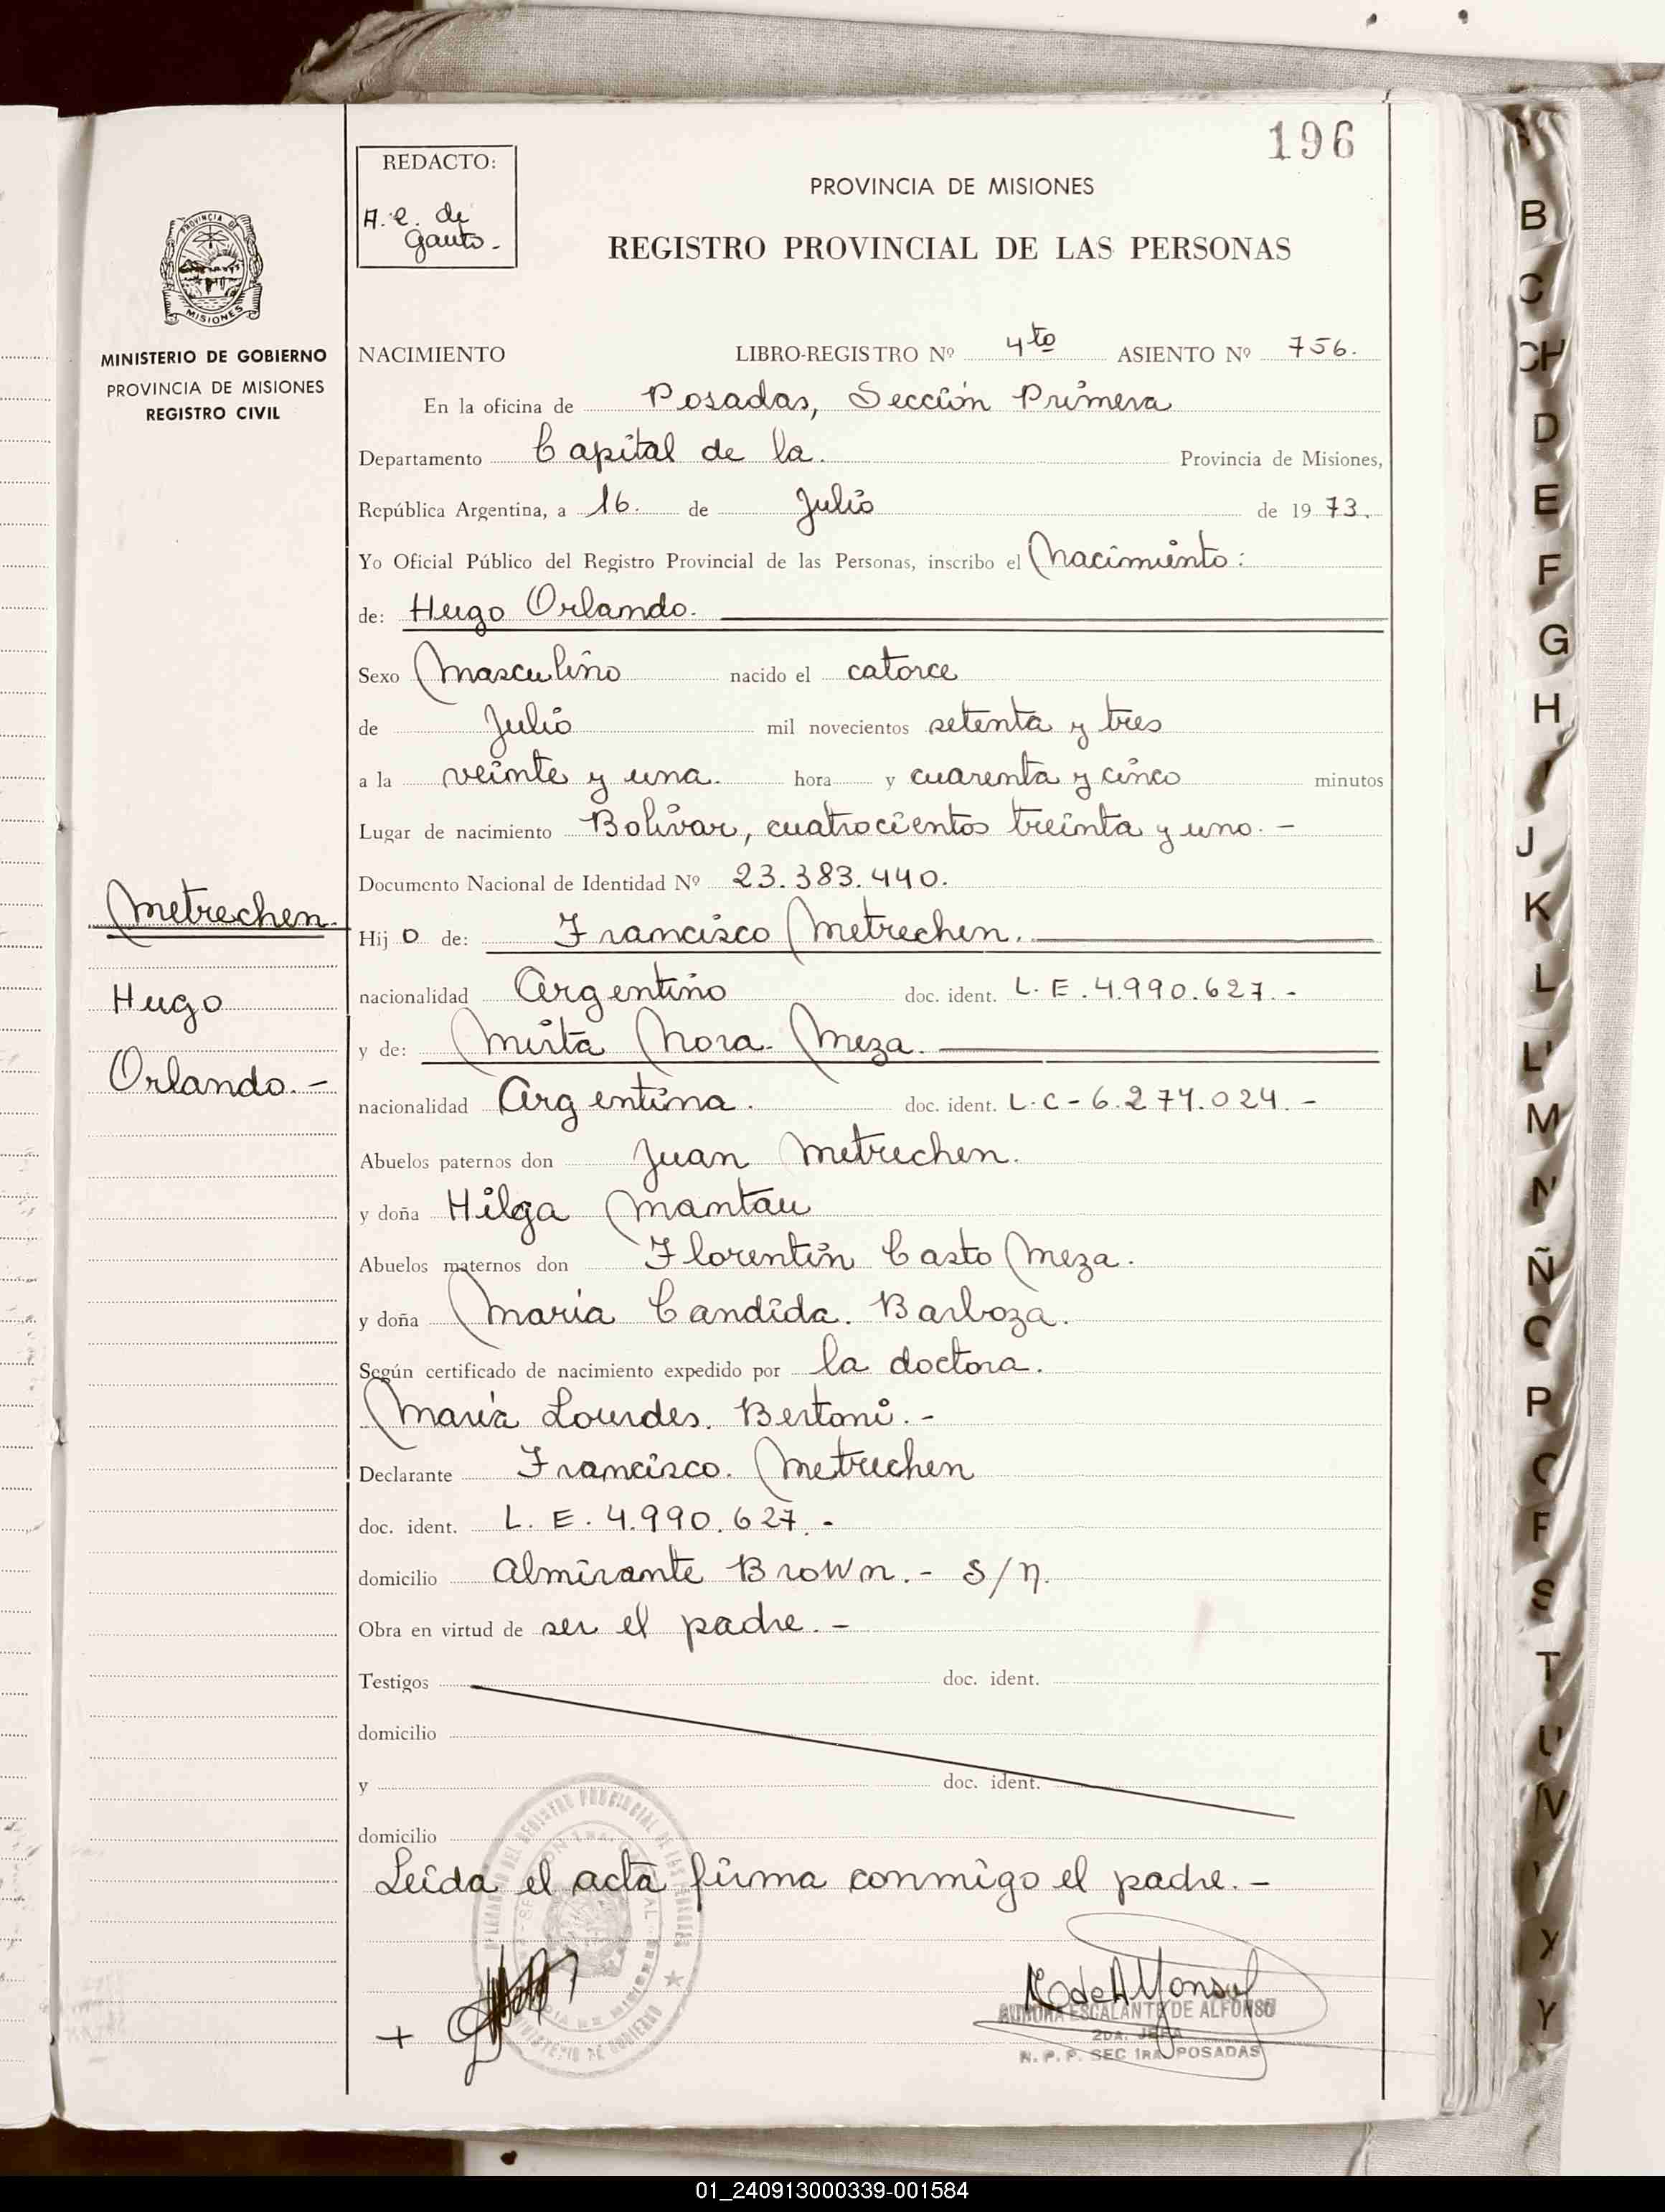 196
REDACTO:
A. e. de
Gauto-
PROVINCIA DE MISIONES
REGISTRO PROVINCIAL DE LAS PERSONAS
PROVINCIA DE
MISIONES
MINISTERIO DE GOBIERNO
PROVINCIA DE MISIONES
REGISTRO CIVIL
NACIMIENTO LIBRO-REGISTRO Nº 4to ASIENTO Nº 756.
En la oficina de Posadas, Sección Primera
Departamento Capital de la. Provincia de Misiones,
República Argentina, a 16. de Julio de 1973.
Yo Oficial Público del Registro Provincial de las Personas, inscribo el Nacimiento:
de: Hugo Orlando.
Sexo Masculino nacido el catorce
de Julio mil novecientos setenta y tres
a la veinte y una. hora y cuarenta y cinco minutos
Lugar de nacimiento Bolivar, cuatrocientos treinta y uno. -
Documento Nacional de Identidad Nº 23.383.440.
Metrechen.
Hugo
Orlando. -
Hijo de: Francisco Metrechen.
nacionalidad Argentino doc. ident. L. E. 4.990.627. -
y de: Mirta Nora. Meza.
nacionalidad Argentina. doc. ident. L.C - 6.274.024. -
Abuelos paternos don Juan Metrechen.
y doña Hilga Mantau
Abuelos maternos don Florentin Casto Meza.
y doña María Candida. Barboza.
Según certificado de nacimiento expedido por la doctora.
María Lourdes. Bertoni. -
Declarante Francisco. Metrechen
doc. ident. L. E. 4.990.627. -
domicilio Almirante Brown. - S/n.
Obra en virtud de ser el padre. -
Testigos doc. ident.
domicilio
y doc. ident.
domicilio
Leída el acta firma conmigo el padre. -
+
AURORA ESCALANTE DE ALFONSO
2DA. JEFA
R. P. P. SEC 1RA POSADAS
B
C
CH
D
E
F
G
H
I
J
K
L
LL
M
N
Ñ
O
P
Q
R
S
T
U
V
X
Y
01_240913000339-001584